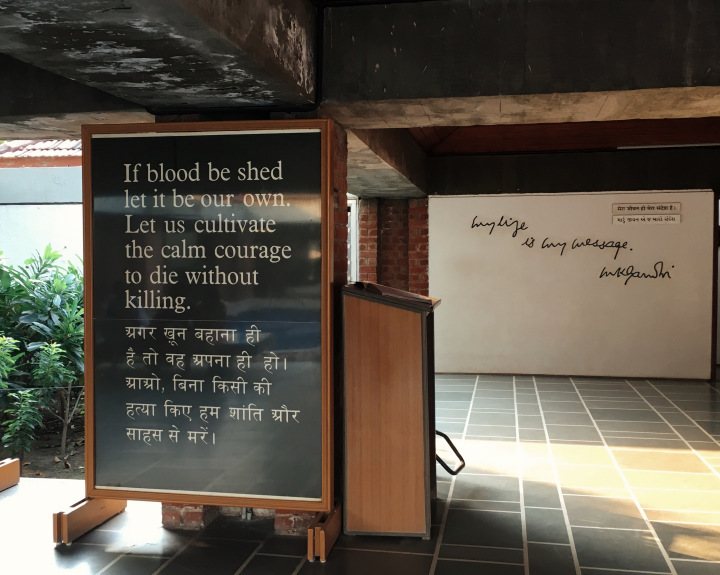 If blood be shed
let it be our own.
Let us cultivate
the calm courage
to die without
killing.
अगर खून बहाना ही
है तो वह अपना ही हो।
आओ, बिना किसी की
हत्या किए हम शांति और
साहस से मरें।
मेरा जीवन ही मेरा संदेश है।
મારું જીવન એ જ મારો સંદેશ
my life
is my message.
mkgandhi